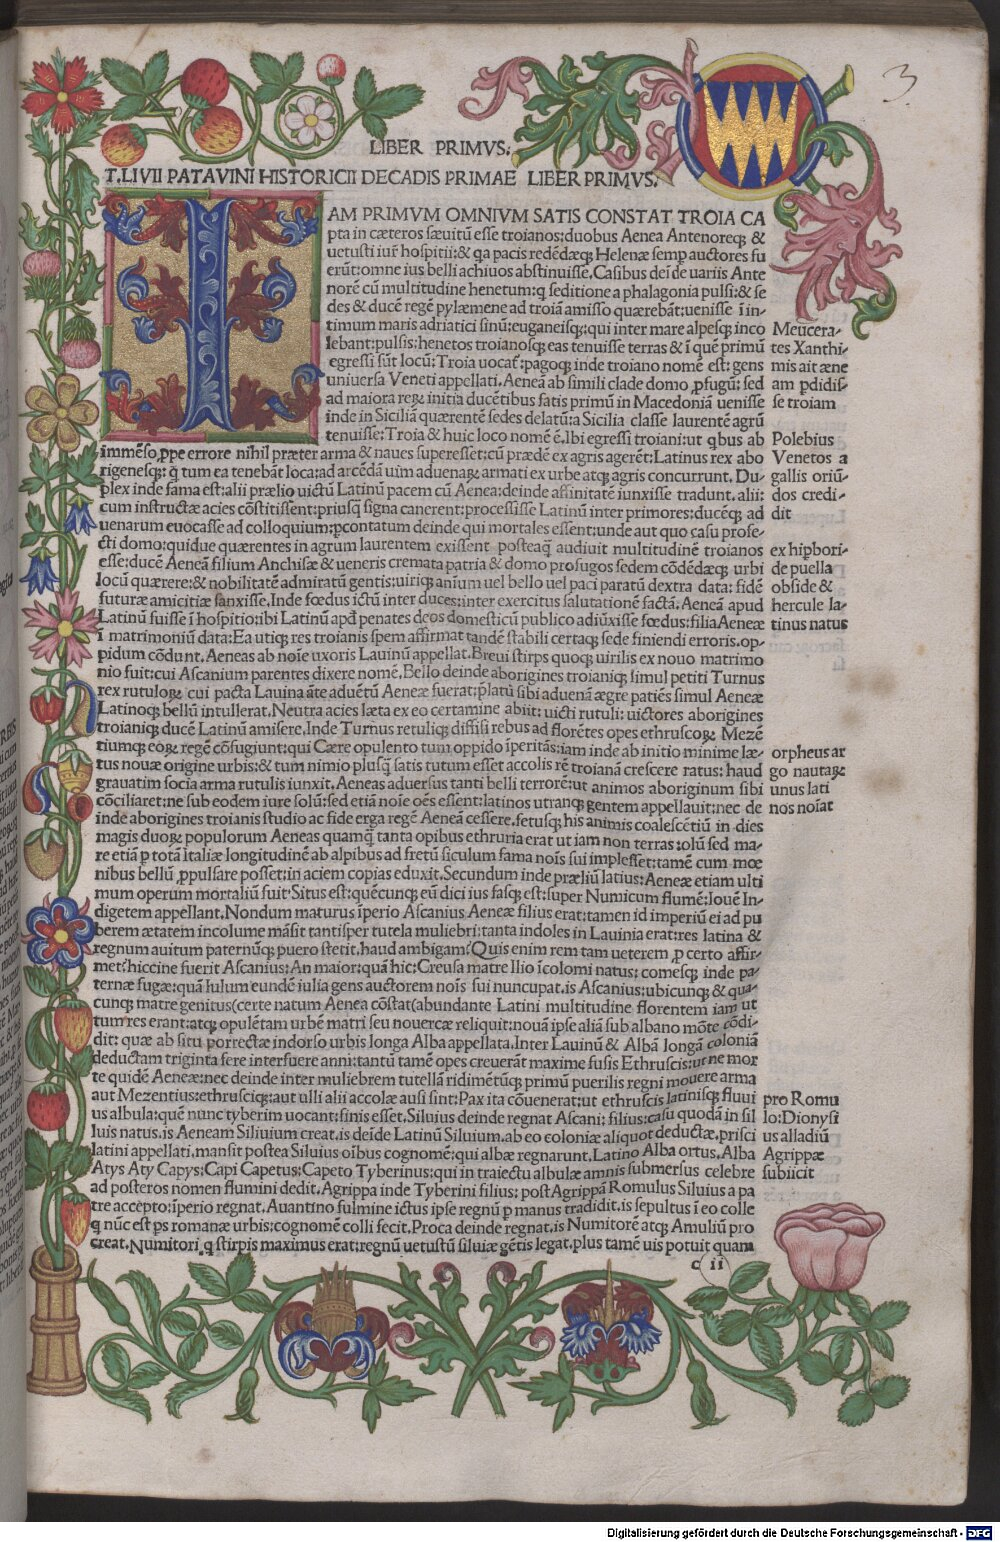 3
LIBER PRIMVS.
T.LIVII PATAVINI HISTORICII DECADIS PRIMAE LIBER PRIMVS.
IAM PRIMVM OMNIVM SATIS CONSTAT TROIA CA
pta in cæteros sæuitũ esse troianos:duobus Aenea Antenoreq; &
uetusti iurͥ hospitii:& qa pacis redẽdæq; Helenæ semp auctores fu
erũt:omne ius belli achiuos abstinuisse.Casibus deĩde uariis Ante
norẽ cũ multitudine henetum:q seditione a phalagonia pulsi:& se
des & ducẽ regẽ pylæmene ad troiã amisso quærebãt:uenisse ĩ in-
timum maris adriatici sinũ:euganeisq;:qui inter mare alpesq; inco
lebant:pulsis:henetos troianosq; eas tenuisse terras & ĩ quẽ primũ
egressi sũt locũ:Troia uocat̃:pagoq; inde troiano nomẽ est: gens
uniuersa Veneti appellati.Aeneã ab simili clade domo ꝓfugũ: sed
ad maiora reꝝ initia ducẽtibus fatis primũ in Macedoniã uenisse
inde in Siciliã quærentẽ sedes delatũ:a Sicilia classe laurentẽ agrũ
tenuisse:Troia & huic loco nomẽ ẽ.Ibi egressi troiani:ut qbus ab
immẽso,ppe errore nihil præter arma & naues superesset:cũ prædẽ ex agris agerẽt:Latinus rex abo
rigenesq; q̃ tum ea tenebãt loca:ad arcẽdã uĩm aduenaꝝ armati ex urbe atq; agris concurrunt.Du-
plex inde fama est:alii prælio uictũ Latinũ pacem cũ Aenea:deinde affinitatẽ iunxisse tradunt.alii:
cum instructæ acies cõstitissent:priusq̃ signa canerent:processisse Latinũ inter primores:ducẽq; ad
uenarum euocasse ad colloquium:pcontatum deinde qui mortales essent:unde aut quo casu profe-
cti domo:quidue quærentes in agrum laurentem exissent posteaq̃ audiuit multitudinẽ troianos
esse:ducẽ Aeneã filium Anchisæ & ueneris cremata patria & domo profugos sedem cõdẽdæq; urbi
locũ quærere:& nobilitatẽ admiratũ gentis:uiriq; anĩum uel bello uel paci paratũ dextra data: fidẽ
futuræ amicitiæ sanxisse.Inde fœdus ictũ inter duces:inter exercitus salutationẽ factã.Aeneã apud
Latinũ fuisse ĩ hospitio:ibi Latinũ apd̃ penates deos domesticũ publico adiũxisse fœdus:filia Aeneæ
ĩ matrimoniũ data:Ea utiq; res troianis spem affirmat tandẽ stabili certaq; sede finiendi erroris.op-
pidum cõdunt.Aeneas ab noĩe uxoris Lauinũ appellat.Breui stirps quoq; uirilis ex nouo matrimo
nio fuit:cui Ascanium parentes dixere nomẽ.Bello deinde aborigines troianiq; simul petiti Turnus
rex rutuloꝝ cui pacta Lauina ãte aduẽtũ Aeneæ fuerat:plãtũ sibi aduenã ægre patiẽs simul Aeneæ
Latinoq; bellũ intullerat.Neutra acies læta ex eo certamine abiit:uicti rutuli:uictores aborigines
troianiq; ducẽ Latinũ amisere.Inde Turnus retuliq; diffisi rebus ad florẽtes opes ethruscoꝝ Mezẽ
tiumq; eoꝝ regẽ cõfugiunt:qui Cære opulento tum oppido ĩperitãs:iam inde ab initio minime læ-
tus nouæ origine urbis:& tum nimio plusq̃ satis tutum esset accolis rẽ troianã crescere ratus: haud
grauatim socia arma rutulis iunxit.Aeneas aduersus tanti belli terrorẽ:ut animos aboriginum sibi
cõciliaret:ne sub eodem iure solũ:sed etiã noĩe oẽs essent:latinos utranq; gentem appellauit:nec de
inde aborigines troianis studio ac fide erga regẽ Aeneã cessere.fetusq; his animis coalescẽtiũ in dies
magis duoꝝ populorum Aeneas quamq̃ tanta opibus ethruria erat ut iam non terras solũ sed ma-
re etiã p totã ĩtaliæ longitudinẽ ab alpibus ad fretũ siculum fama noĩs sui implesset:tamẽ cum mœ
nibus bellũ ꝓpulsare posset:in aciem copias eduxit.Secundum inde præliũ latiũs:Aeneæ etiam ulti
mum operum mortaliũ fuit.Situs est:quẽcunq; eũ dici ius fasq; est:super Numicum flumẽ:Iouẽ In-
digetem appellant.Nondum maturus ĩperio Ascanius Aeneæ filius erat:tamen id imperiũ ei ad pu
berem ætatem incolume mãsit tantisper tutela muliebri:tanta indoles in Lauinia erat:res latina &
regnum auitum paternũq; puero stetit.haud ambigam:Quis enim rem tam ueterem ꝓ certo affir-
met:hiccine fuerit Ascanius:An maior:quã hic:Creusa matre Ilio ĩcolomi natus: comesq; inde pa-
ternæ fugæ:quã Iulum eundẽ iulia gens auctorem noĩs sui nuncupat.is Ascanius:ubicunq; & qua-
cunq; matre genitus(certe natum Aenea cõstat(abundante Latini multitudine florentem iam ut
tum res erant:atq; opulẽtam urbẽ matri seu nouercæ reliquit:nouã ipse aliã sub albano mõte cõdi-
dit: quæ ab situ porrectæ indorso urbis longa Alba appellata.Inter Lauinũ & Albã longã coloniã
deductam triginta fere interfuere anni:tantũ tamẽ opes creuerãt maxime fusis Ethruscis:ut ne mor
te quidẽ Aeneæ:nec deinde inter muliebrem tutellã ridimẽtũq; primũ puerilis regni mouere arma
aut Mezentius:ethrusciq;:aut ulli alii accolæ ausi sint:Pax ita cõuenerat:ut ethruscis latinisq; fluui
us albula:quẽ nunc tyberim uocant:finis esset.Siluius deinde regnat Ascani: filius:casu quodã in sil
luis natus.is Aeneam Siliuium creat.is deĩde Latinũ Siluium.ab eo coloniæ aliquot deductæ,prisci
latini appellati,mansit postea Siluius oĩbus cognomẽ:qui albæ regnarunt.Latino Alba ortus.Alba
Atys Aty Capys:Capi Capetus:Capeto Tyberinus:qui in traiectu albulæ amnis submersus celebre
ad posteros nomen flumini dedit.Agrippa inde Tyberini filius: post Agrippã Romulus Siluius a pa
tre accepto:ĩperio regnat.Auantino fulmine ictus ipse regnũ p manus tradidit.is sepultus ĩ eo colle
q nũc est ps romanæ urbis:cognomẽ colli fecit.Proca deinde regnat.is Numitorẽ atq; Amuliũ pro
creat.Numitori q stirpis maximus erat:regnũ uetustũ siluiæ gẽtis legat.plus tamẽ uis potuit quam
c ii
Meucera-
tes Xanthi-
mis ait æne
am pdidis-
se troiam
Polebius
Venetos a
gallis oriũ-
dos credi-
dit
ex hipbori-
de puella
obside &
hercule la-
tinus natus
orpheus ar
go nautaꝝ
unus lati
nos noĩat
pro Romu
lo:Dionysi
us alladiũ
Agrippæ
subiicit
Digitalisierung gefördert durch die Deutsche Forschungsgemeinschaft - DFG